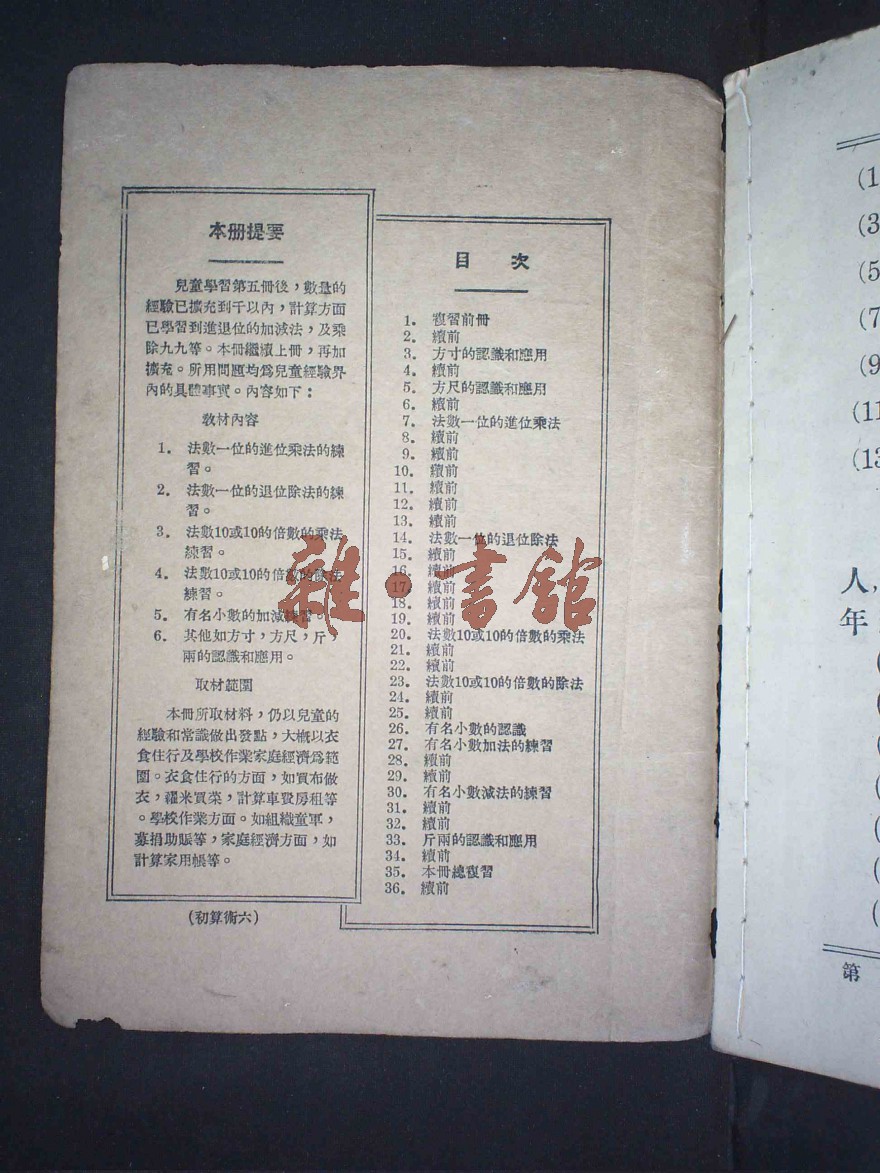 本册提要
兒童學習第五冊後，數量的
經驗已擴充到千以內，計算方面
已學習到進退位的加減法，及乘
除九九等。本冊繼續上冊，再加
擴充。所用問題均為兒童經驗界
內的具體事實。內容如下：
教材內容
1. 法數一位的進位乘法的練
習。
2. 法數一位的退位除法的練
習。
3. 法數10或10的倍數的乘法
練習。
4. 法數10或10的倍數的除法
練習。
5. 有名小數的加減練習。
6. 其他如方寸，方尺，斤，
兩的認識和應用。
取材範圍
本冊所取材料，仍以兒童的
經驗和常識做出發點，大概以衣
食住行及學校作業家庭經濟為範
圍。衣食住行的方面，如買布做
衣，糴米買菜，計算車費房租等
。學校作業方面。如組織童軍，
募捐助賑等，家庭經濟方面，如
計算家用帳等。
（初算術六）
目 次
1. 複習前冊
2. 續前
3. 方寸的認識和應用
4. 續前
5. 方尺的認識和應用
6. 續前
7. 法數一位的進位乘法
8. 續前
9. 續前
10. 續前
11. 續前
12. 續前
13. 續前
14. 法數一位的退位除法
15. 續前
16. 續前
17. 續前
18. 續前
19. 續前
20. 法數10或10的倍數的乘法
21. 續前
22. 續前
23. 法數10或10的倍數的除法
24. 續前
25. 續前
26. 有名小數的認識
27. 有名小數加法的練習
28. 續前
29. 續前
30. 有名小數減法的練習
31. 續前
32. 續前
33. 斤兩的認識和應用
34. 續前
35. 本冊總複習
36. 續前
雜·書館
(1
(3
(5
(7
(9
(11
(13
人，
年
第